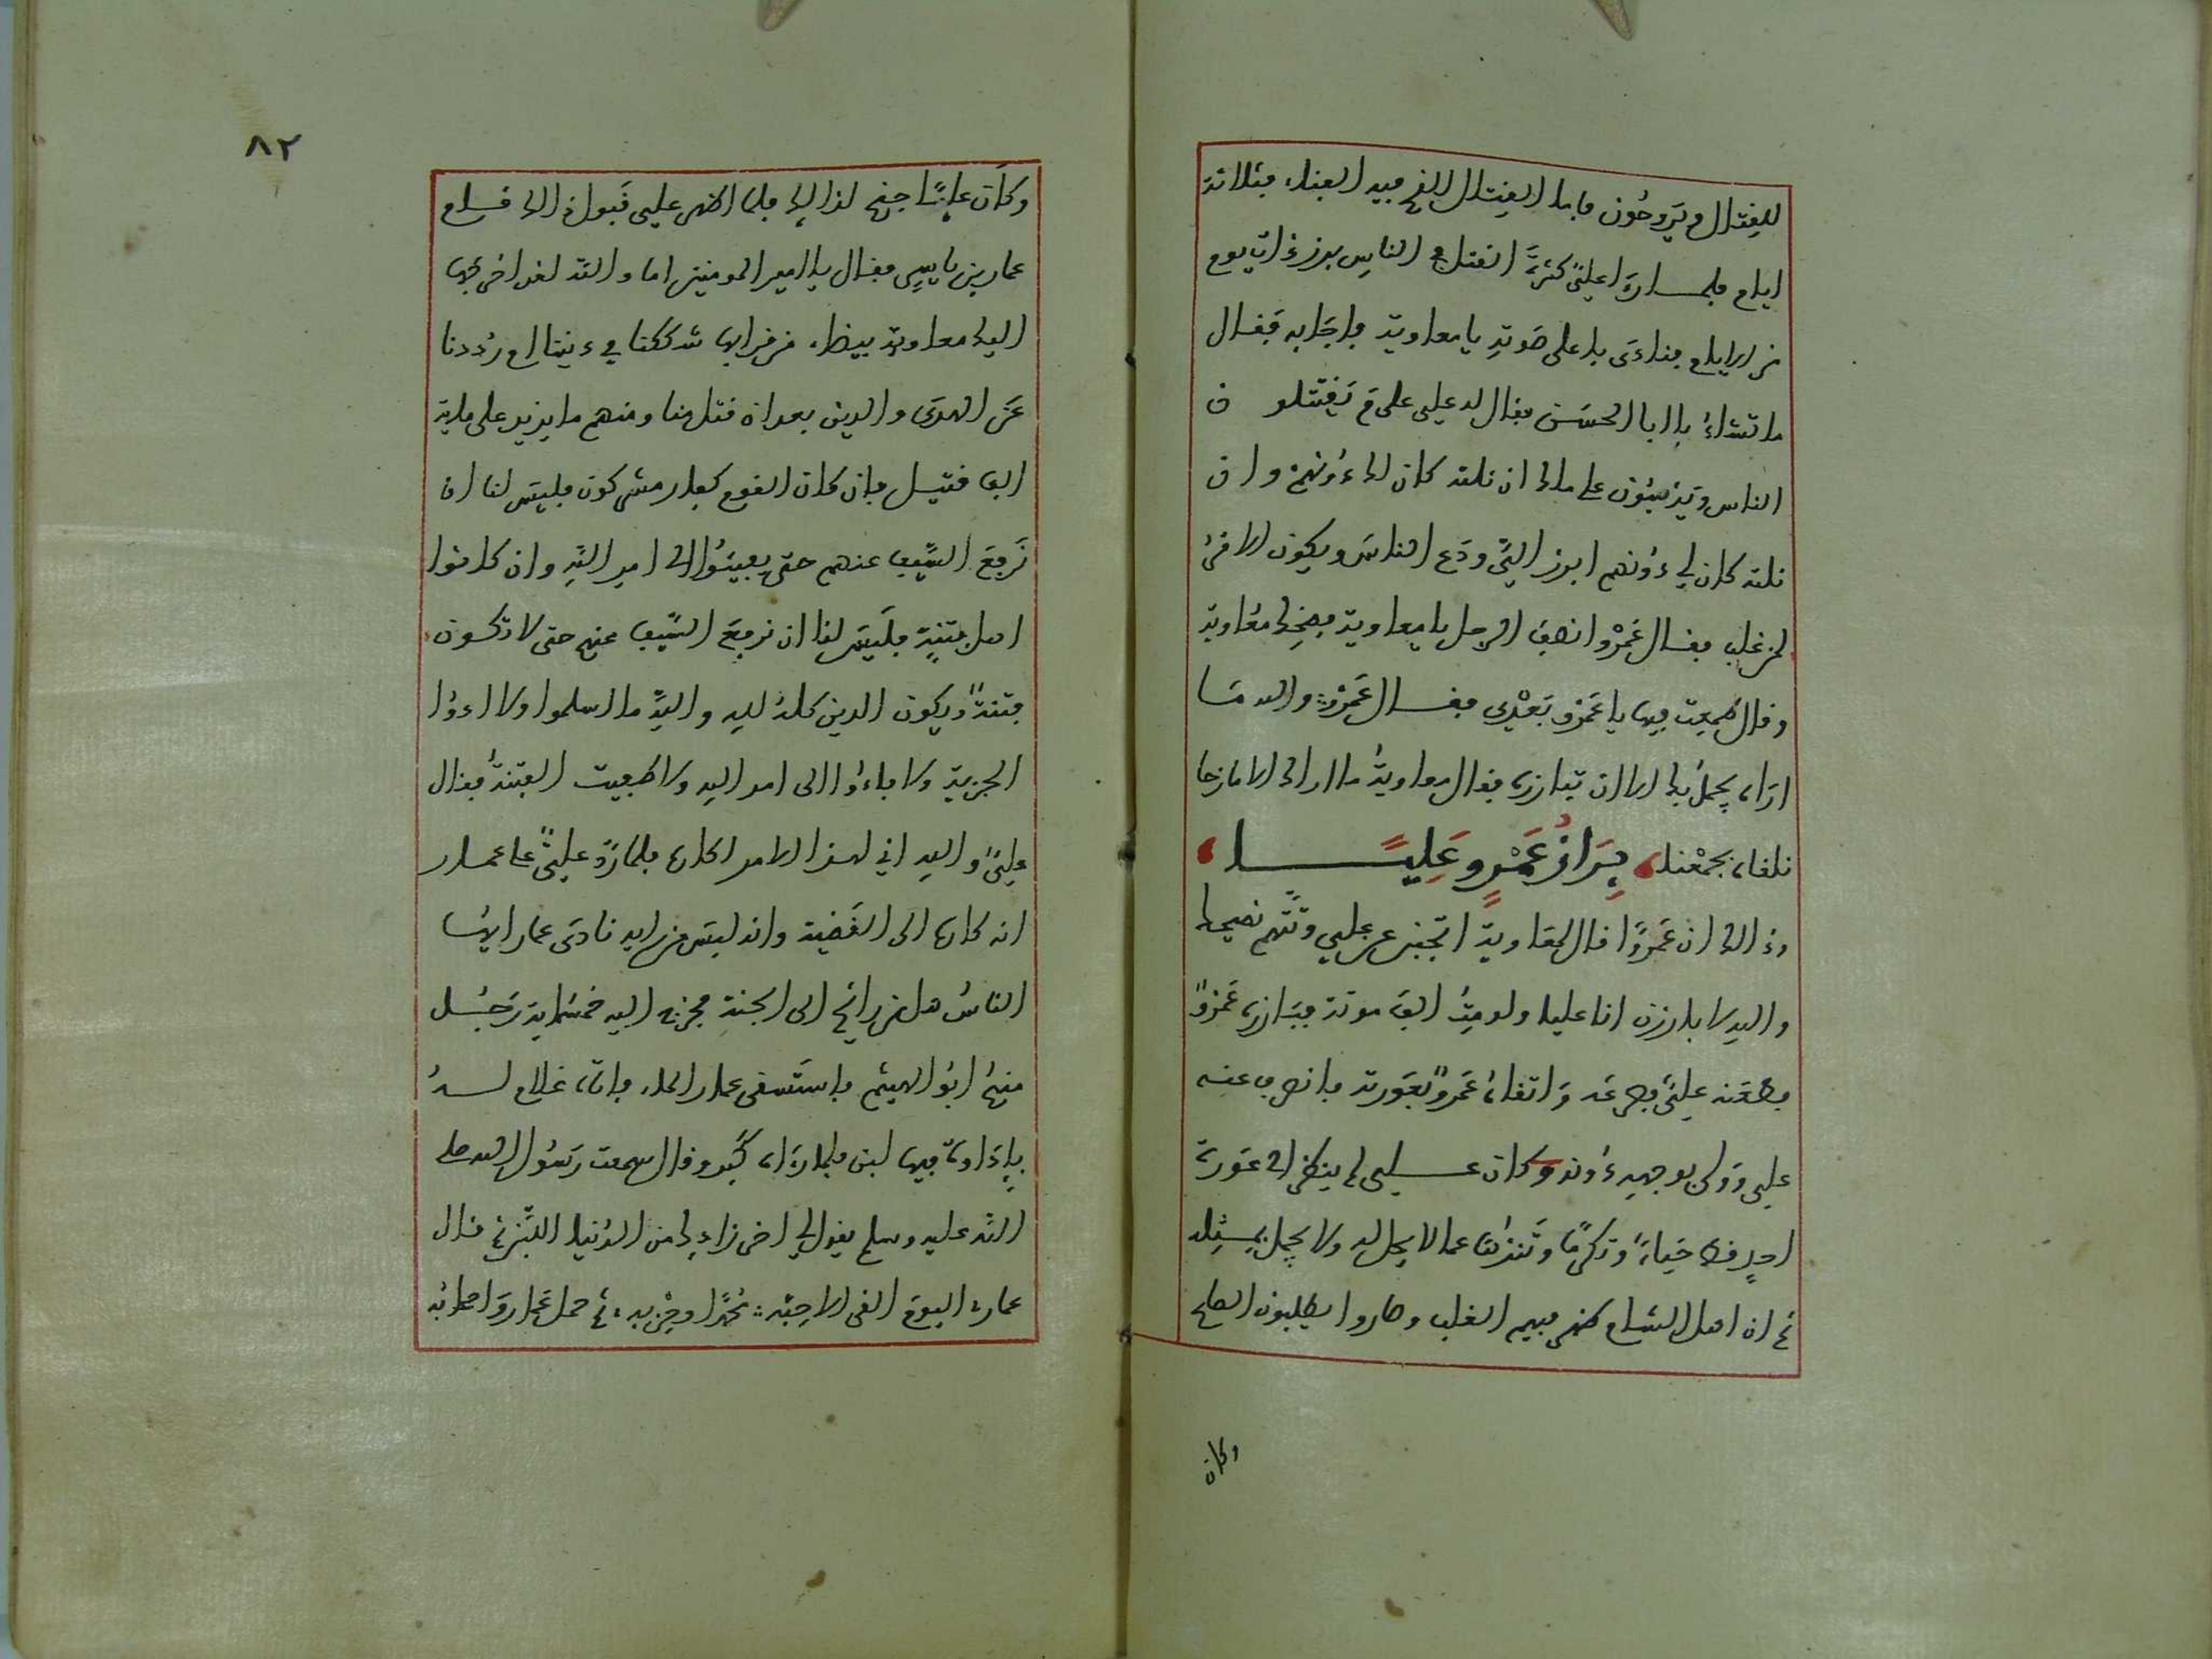 للقتال ويروحون فاما القتال الذي فيه الفناء فثلاثة
ايام فلما رأى علي كثرة القتل في الناس برز ذات يوم
من الايام فنادى باعلى صوته يا معاوية فاجابه فقال
ما تشاء يا ابا الحسن فقال له علي على م يقتتلون
الناس ويذهبون على ملك ان نلته كان لك دونهم وان
نلته كان لي دونهم ابرز الي ودع الناس ويكون الامر
لمن غلب فقال عمرو انصف الرجل يا معاوية فضحك معاوية
وقال طمعت فيها يا عمرو بعدي فقال عمرو والله ما
اراه يجمل بك الا ان تبارزه فقال معاوية ما اراك الا مازحا
نلقاه بجمعنا براز عمرو عليا
وذكر ان عمرا قال لمعاوية اتجبن عن علي وتتهم نصيحتي
والله لا بارزن انا عليا ولو مت الف موتة فبارزه عمرو
فطعنه علي فصرعه واتقاه عمرو بعورته فانصرف عنه
علي وولى بوجهه دونه وكان علي لم ينظر الى عورة
احد قط حياء وتكرما وتنزها عما لا يحل له ولا يجمل بمثله
ثم ان اهل الشام ظهر فيهم الغلب وصاروا يطلبون الصلح
وكان
٨٢
وكان علي جنح لذلك فلما اظهر علي قبول ذلك قام
عمار بن ياسر فقال يا امير المومنين اما والله لقد اخرجها
اليك معاوية بيضاء من قر ابها شككنا في ديننا ام رددنا
عن الهدى والدين بعد ان قتل منا ومنهم ما يزيد على ماية
الف قتيل فان كان القوم كفار مشركون فليس لنا ان
نرفع السيف عنهم حتى يفيئوا الى امر الله وان كانوا
اهل فتنة فليس لنا ان نرفع السيف عنهم حتى لا تكون
فتنة ويكون الدين كله لله والله ما اسلموا ولا ادوا
الجزية ولا فاءوا الى امر الله ولا طفيت الفتنة فقال
علي والله اني لهذا الامر لكاره فلما رد علي على عمار
انه كاره الى القضية وانه ليس من رايه نادى عمار ايها
الناس هل من رائح الى الجنة فخرج اليه خمسماية رجل
منهم ابو الهيثم فاستسقى عمار الماء فاتاه غلام له
باداوة فيها لبن فلما رآه كبر وقال سمعت رسول الله صلى
الله عليه وسلم يقول لي اخر زادك من الدنيا اللبن ثم قال
عمار اليوم القى الاحبة محمدا وحزبه ثم حمل عمار واصحابه